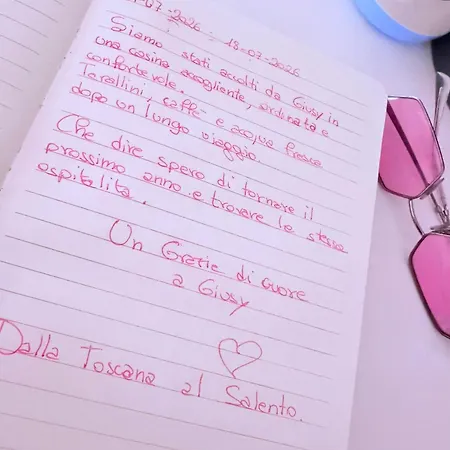 -07-2026 - 18-07-2026
Siamo stati accolti da Giusy in
una casina accogliente, ordinata e
confortevole.
Tarallini, caffè e acqua fresca
dopo un lungo viaggio.
Che dire spero di tornare il
prossimo anno e trovare le stessa
ospitalita.
Un Grazie di cuore
a Giusy
Dalla Toscana al Salento.